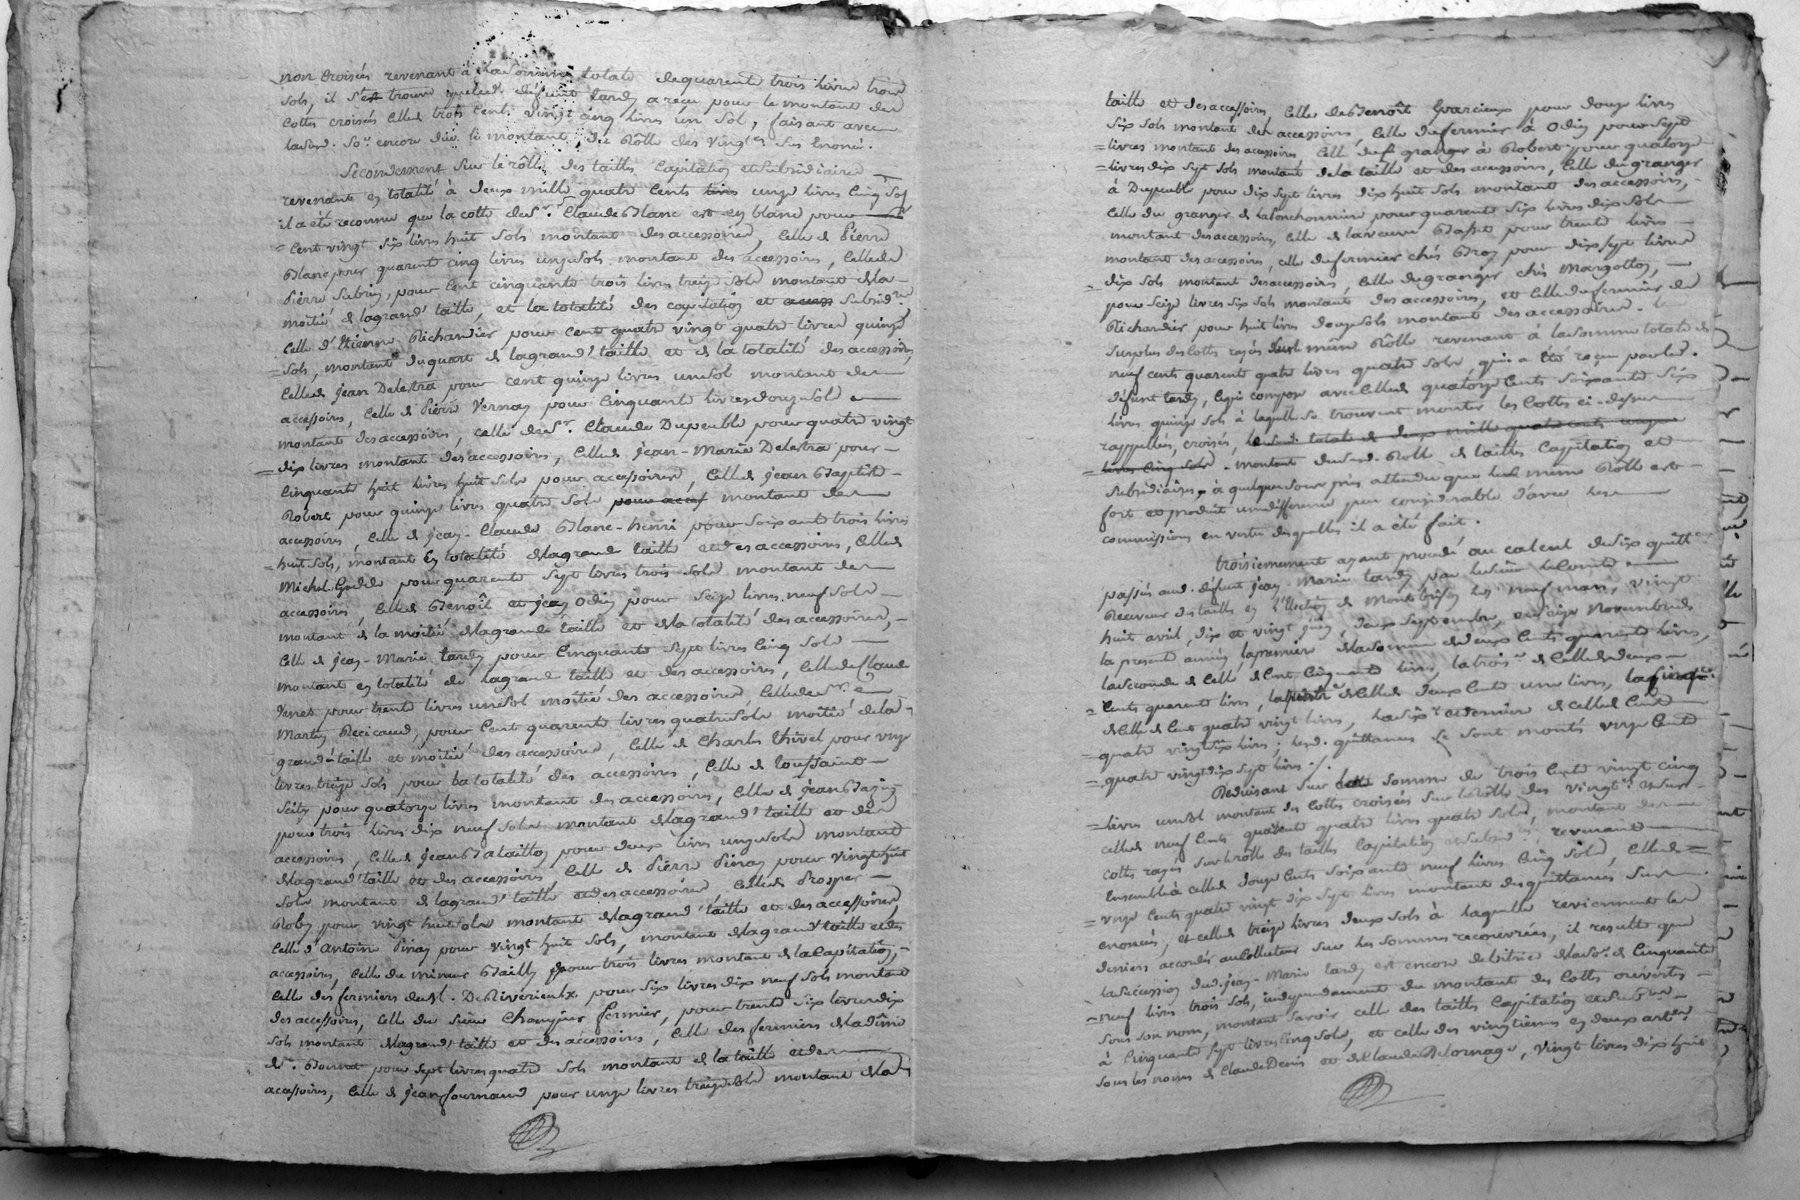 non croisées revenant à la somme totale de quarente trois livres trois
sols, il s'est trouvé que led. défunt tardy a reçu pour le montant des
cottes croisées celle de trois cents vingt cinq livres un sol, faisant avec
lasusd. so.e encore düe le montant du Rôlle des vingt.es sus énoncé.
Secondement sur le rôlle des tailles capitation et subsidiaire
revenante en totalité à deux mille quatre cents onze livres cinq sols
il a été reconnu que la cotte de s.r Claude Blanc est en blanc pour
cent vingt six livres huit sols montant des accessoires, celle de Pierre
Blanc pour quarente cinq livres onze sols montant des accessoires, celle de
Pierre Subrin, pour cent cinquante trois livres treize sols montant de la
moitié de la grand' taille, et la totalité des capitation et subsid.re
celle d'Etienne Richardier pour cent quatre vingt quatre livres quinze
sols, montant du quart de la grand' taille et de la totalité des accessoires
celle de jean Delestra pour cent quinze livres un sol montant des
accessoires, celle de Pierre Vernay pour cinquante livres douze sols
montant des accessoires, celle de s.r Claude Dupeuble pour quatre vingt
dix livres montant des accessoires, celle de jean-Marie Delestra pour
cinquante huit livres huit sols pour accessoires, celle de jean Baptiste
Robert pour quinze livres quatre sols pour acces montant des
accessoires, celle de jean-Claude Blanc-henri pour soixante trois livres
huit sols, montant en totalité de la grande taille et des accessoires, celle de
Michel pour quarente sept livres trois sols montant des
accessoires, celle de Benoît et jean Odin pour seize livres neuf sols
montant de la moitié de la grande taille et de la totalité des accessoires,
celle de jean-Marie tardy pour cinquante sept livres cinq sols
montant en totalité de la grande taille et des accessoires, celle de Claude
Venet pour trente livres un sol moitié des accessoires, celle de s.r
Martin Recicaud, pour cent quarente livres quatre sols moitié de la
grand-taille et moitié des accessoires, celle de Charles thivel pour onze
livres treize sols pour la totalité des accessoires, celle de toussaint
Seity pour quatorze livres montant des accessoires, celle de jean Bazin
pour trois livres dix neuf sols montant de la grand' taille et des
accessoires, celle de jean Bataillon pour deux livres onze sols montant
de la grand' taille et des accessoires, celle de Pierre Pinay pour vingt huit
sols montant de la grand' taille et des accessoires, celle de Prosper
Roby pour vingt huit sols montant de la grand' taille et des accessoires,
celle d'antoine Pinay pour vingt huit sols, montant de la grand' taille et des
accessoires, celle du mineur Bailly pour trois livres montant de la capitation,
celle des fermiers de M. DeRiverieulx pour six livres dix neuf sols montant
des accessoires, celle du sieur fermier, pour trente six livres dix
sols montant de la grand' taille et des accessoires, celle des fermiers de
pour sept livres quatre sols montant de la taille et des
accessoires, celle de jean fournand pour onze livres treize sols montant de la
taille et des accessoires, celle de Benoît pour douze livres
six sols montant des accessoires, celle du fermier à Odin pour sept
livres montant des accessoires celle du granger à Robert pour quatorze
livres dix sept sols montant de la taille et des accessoires, celle du granger
à Dupeuble pour dix sept livres dix huit sols montant des accessoires,
celle du granger de la ponchonnière pour quarente six livres dix sols
montant des accessoires, celle de la veuve Basset pour trente livres
montant des accessoires, celle du fermier chés Bray pour dix sept livres
dix sols montant des accessoires, celle du granger chés Margotton,
pour seize livres six sols montant des accessoires, et celle du fermier de
Richardier pour huit livres douze sols montant des accessoires. Le
surplus des cottes rayés sur le même Rôlle revenant à la somme totale de
neuf cents quarente quatre livres quatre sols, qui a été reçue par led.
défunt tardy, laquelle compose avec celle de quatorze cents soixante six
livres quinze sols à laquelle se trouvent monter les cottes ci-dessus
rappellées, croisées, totale de deux mille quatre cents onze
livres cinq sols. montant dususd. Rôlle de tailles capitation et
subsidiaires, à quelques sous près attendu que led. même Rôlle est
fort et produit une différence peu considérable d'avec les
commissions en vertu desquelles il a été fait.
troisiemement ayant procédé au calcul de six quitt.ces
passées aud. défunt jean-Marie tardy par le sieur leComte
Receveur des tailles en l'Election de Montbrison les neuf mars, vingt
huit avril, dix et vingt juin, deux septembre, et seize Novembre de
la présente année, la premiere de la somme de deux cents quarente livres,
la seconde de celle de cent cinquante livres, la trois.e de celle de deux
cents quarente livres, la quatr.e de celle de deux cents une livres, la cinq.e
de celle de cent quatre vingt livres, la six.e et derniere de celle de cent
quatre vingt six livres; lesd. quittances se sont montés onze cent
quatre vingt dix sept livres ./.
Réduisant sur cette somme de trois cents vingt cinq
livres un sol montant des cottes croisées sur le rôlle des vingt.es & sur
celle de neuf cents quarente quatre livres quatre sols, montant des
cottes rayés sur le rolle des tailles capitation et subsid.res revenant
ensemble à celle de douze cents soixante neuf livres cinq sols, celle de
onze cents quatre vingt dix sept livres montant des quittances sus
énoncées, et celle de treize livres deux sols à laquelle reviennent les
deniers accordés au Collecteur sur les sommes recouvrées, il résulte que
la succession dud. jean-Marie tardy est encore débitrice de la so.e de cinquante
neuf livres trois sols, indépendament du montant des cottes ouvertes
sous son nom, montant savoir celle des tailles capitation et subs.res
à cinquante sept livres cinq sols, et celle des vingtiemes en deux art.es
sous les noms de Claude Denis et de Claude Delornage, vingt livres dix huit